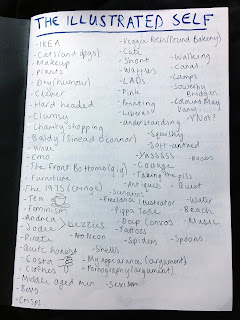 THE ILLUSTRATED SELF
- IKEA
- Cats (and dogs)
- Makeup
- Plants
- Dry (humour)
- Clever
- Hard headed
- Clumsy
- Charity Shopping
- Baldy (Sinead O'Connor)
- Woke
- Emo
- The Front Bottoms (gig)
- Furniture
- The 1975 (cringe)
- Tea
- Feminism
- Andrea
- Jodie
> bezzies
- Pirate
- Quite honest
- Costa
- Clothes
- Middle aged men
- Bems
- Crisps
- Veggie Rolls (Pound Bakery)
- Cute
- Short
- Waffles
- LADs
- Pink
- Printing
- Liberal
- Understanding
- Squishy
- Soft-centred
- Yasssss
- Courage
- Taking the piss
- Antiques
- Sunsets
- Freelance illustrator
- Pippa Toole
- Doup Convos
- Tattoos
- No Neon
- Spiders
- Shells
- My appearance (argument)
- Pornography (argument)
- Sexism
- Walking
- Canal
- Lamps
- Sowerby Bridge
- Colours May Vary
- Y/Not?
- Boobs
- Quest
- Water
- Beach
- Music
- Spoons